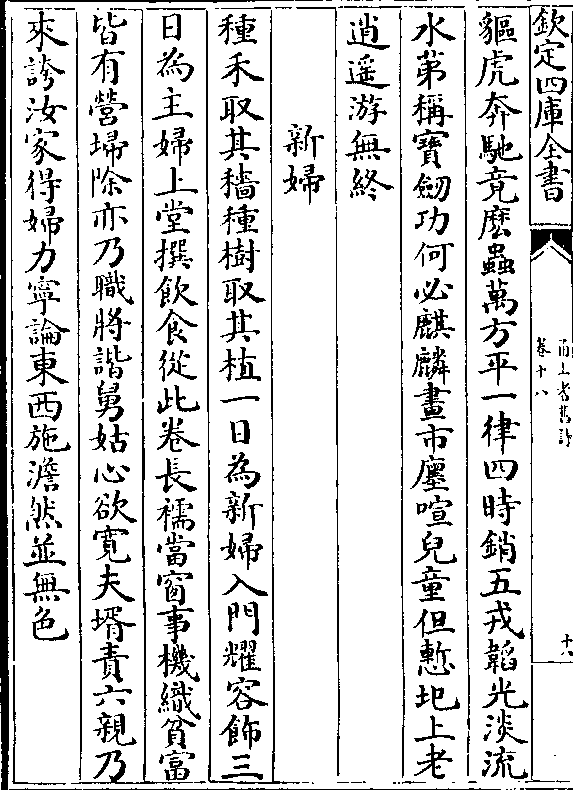 欽定四庫全書
甬上耆舊詩
卷十八
十八
驅虎奔馳竟麽蟲萬方平一律四時銷五戎韜光淡流
水苐稱寳劒功何必麒麟畫市㕓喧兒童但慙圯上老
逍遥游無終
新婦
種禾取其穡種樹取其植一日為新婦入門耀容飾三
日為主婦上堂撰飲食從此卷長襦當窗事機織貧富
皆有營埽除亦乃職將諧舅姑心欲寛夫壻責六親乃
來誇汝家得婦力寧論東西施澹然並無色